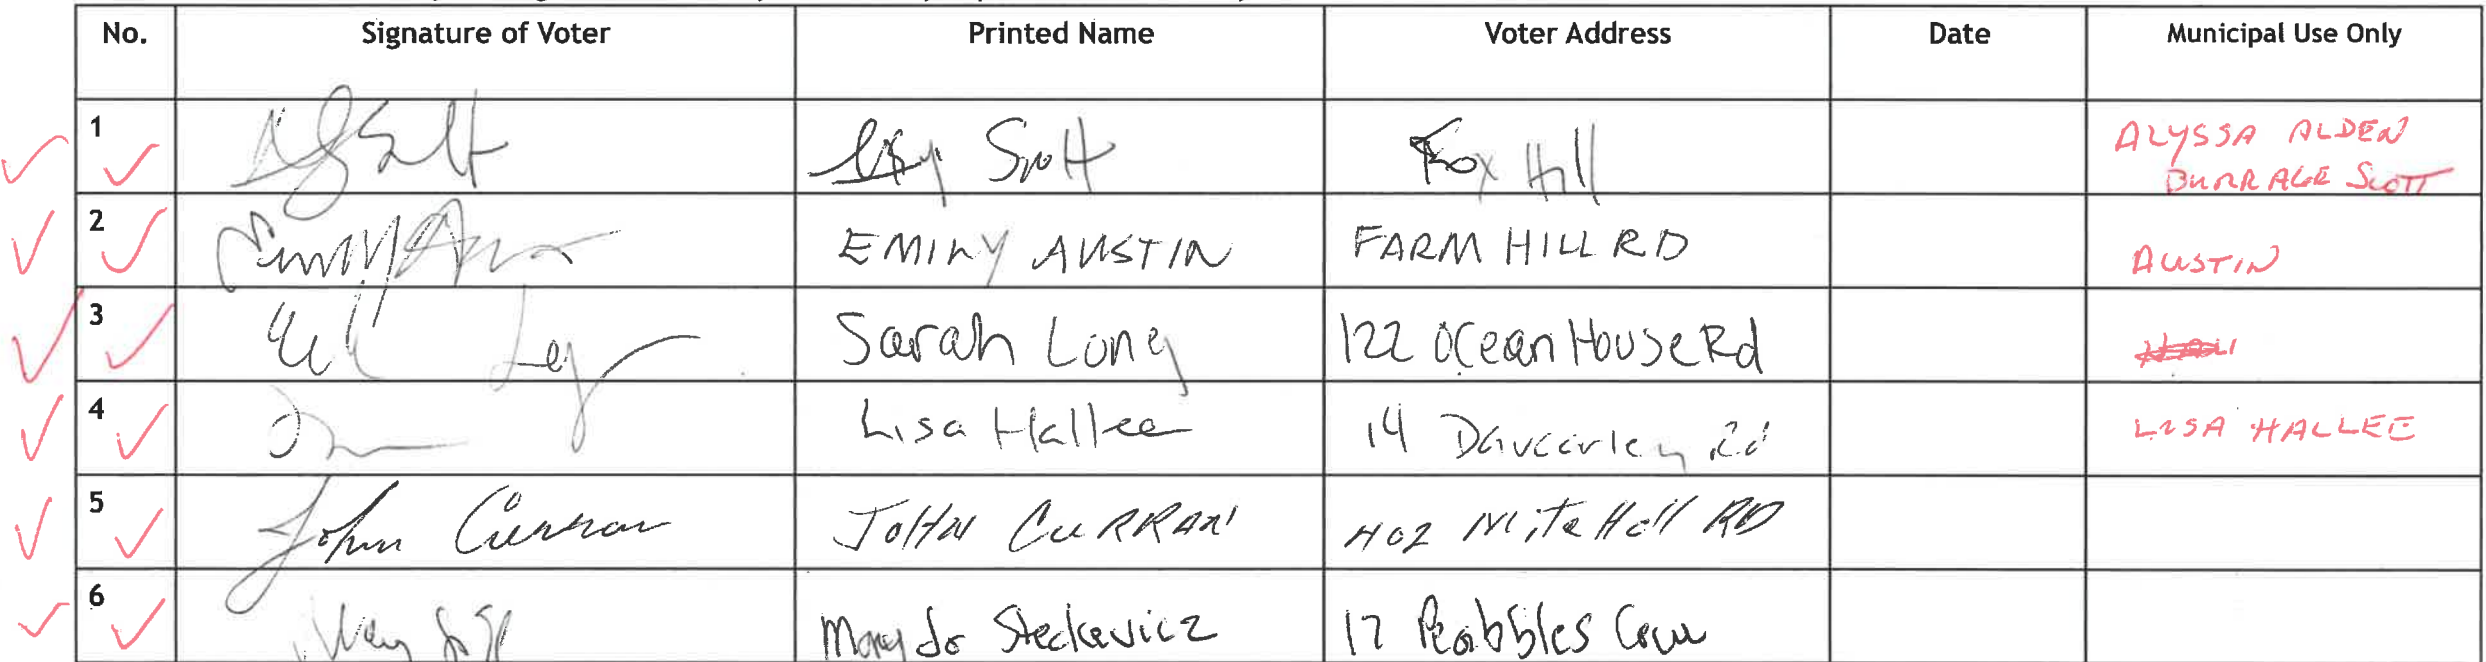 No. Signature of Voter Printed Name Voter Address Date Municipal Use Only
1 Scott Fox Hill ALYSSA ALDEN
BURRAGE SCOTT
2 EMILY AUSTIN FARM HILL RD AUSTIN
3 Sarah Loney 122 Ocean House Rd
4 Lisa Hallee 14 Rd LISA HALLEE
5 John Curran JOHN CURRAN 402 Mitchell RD
6 Mary Jo Steckevicz 17 Peabbles Cove